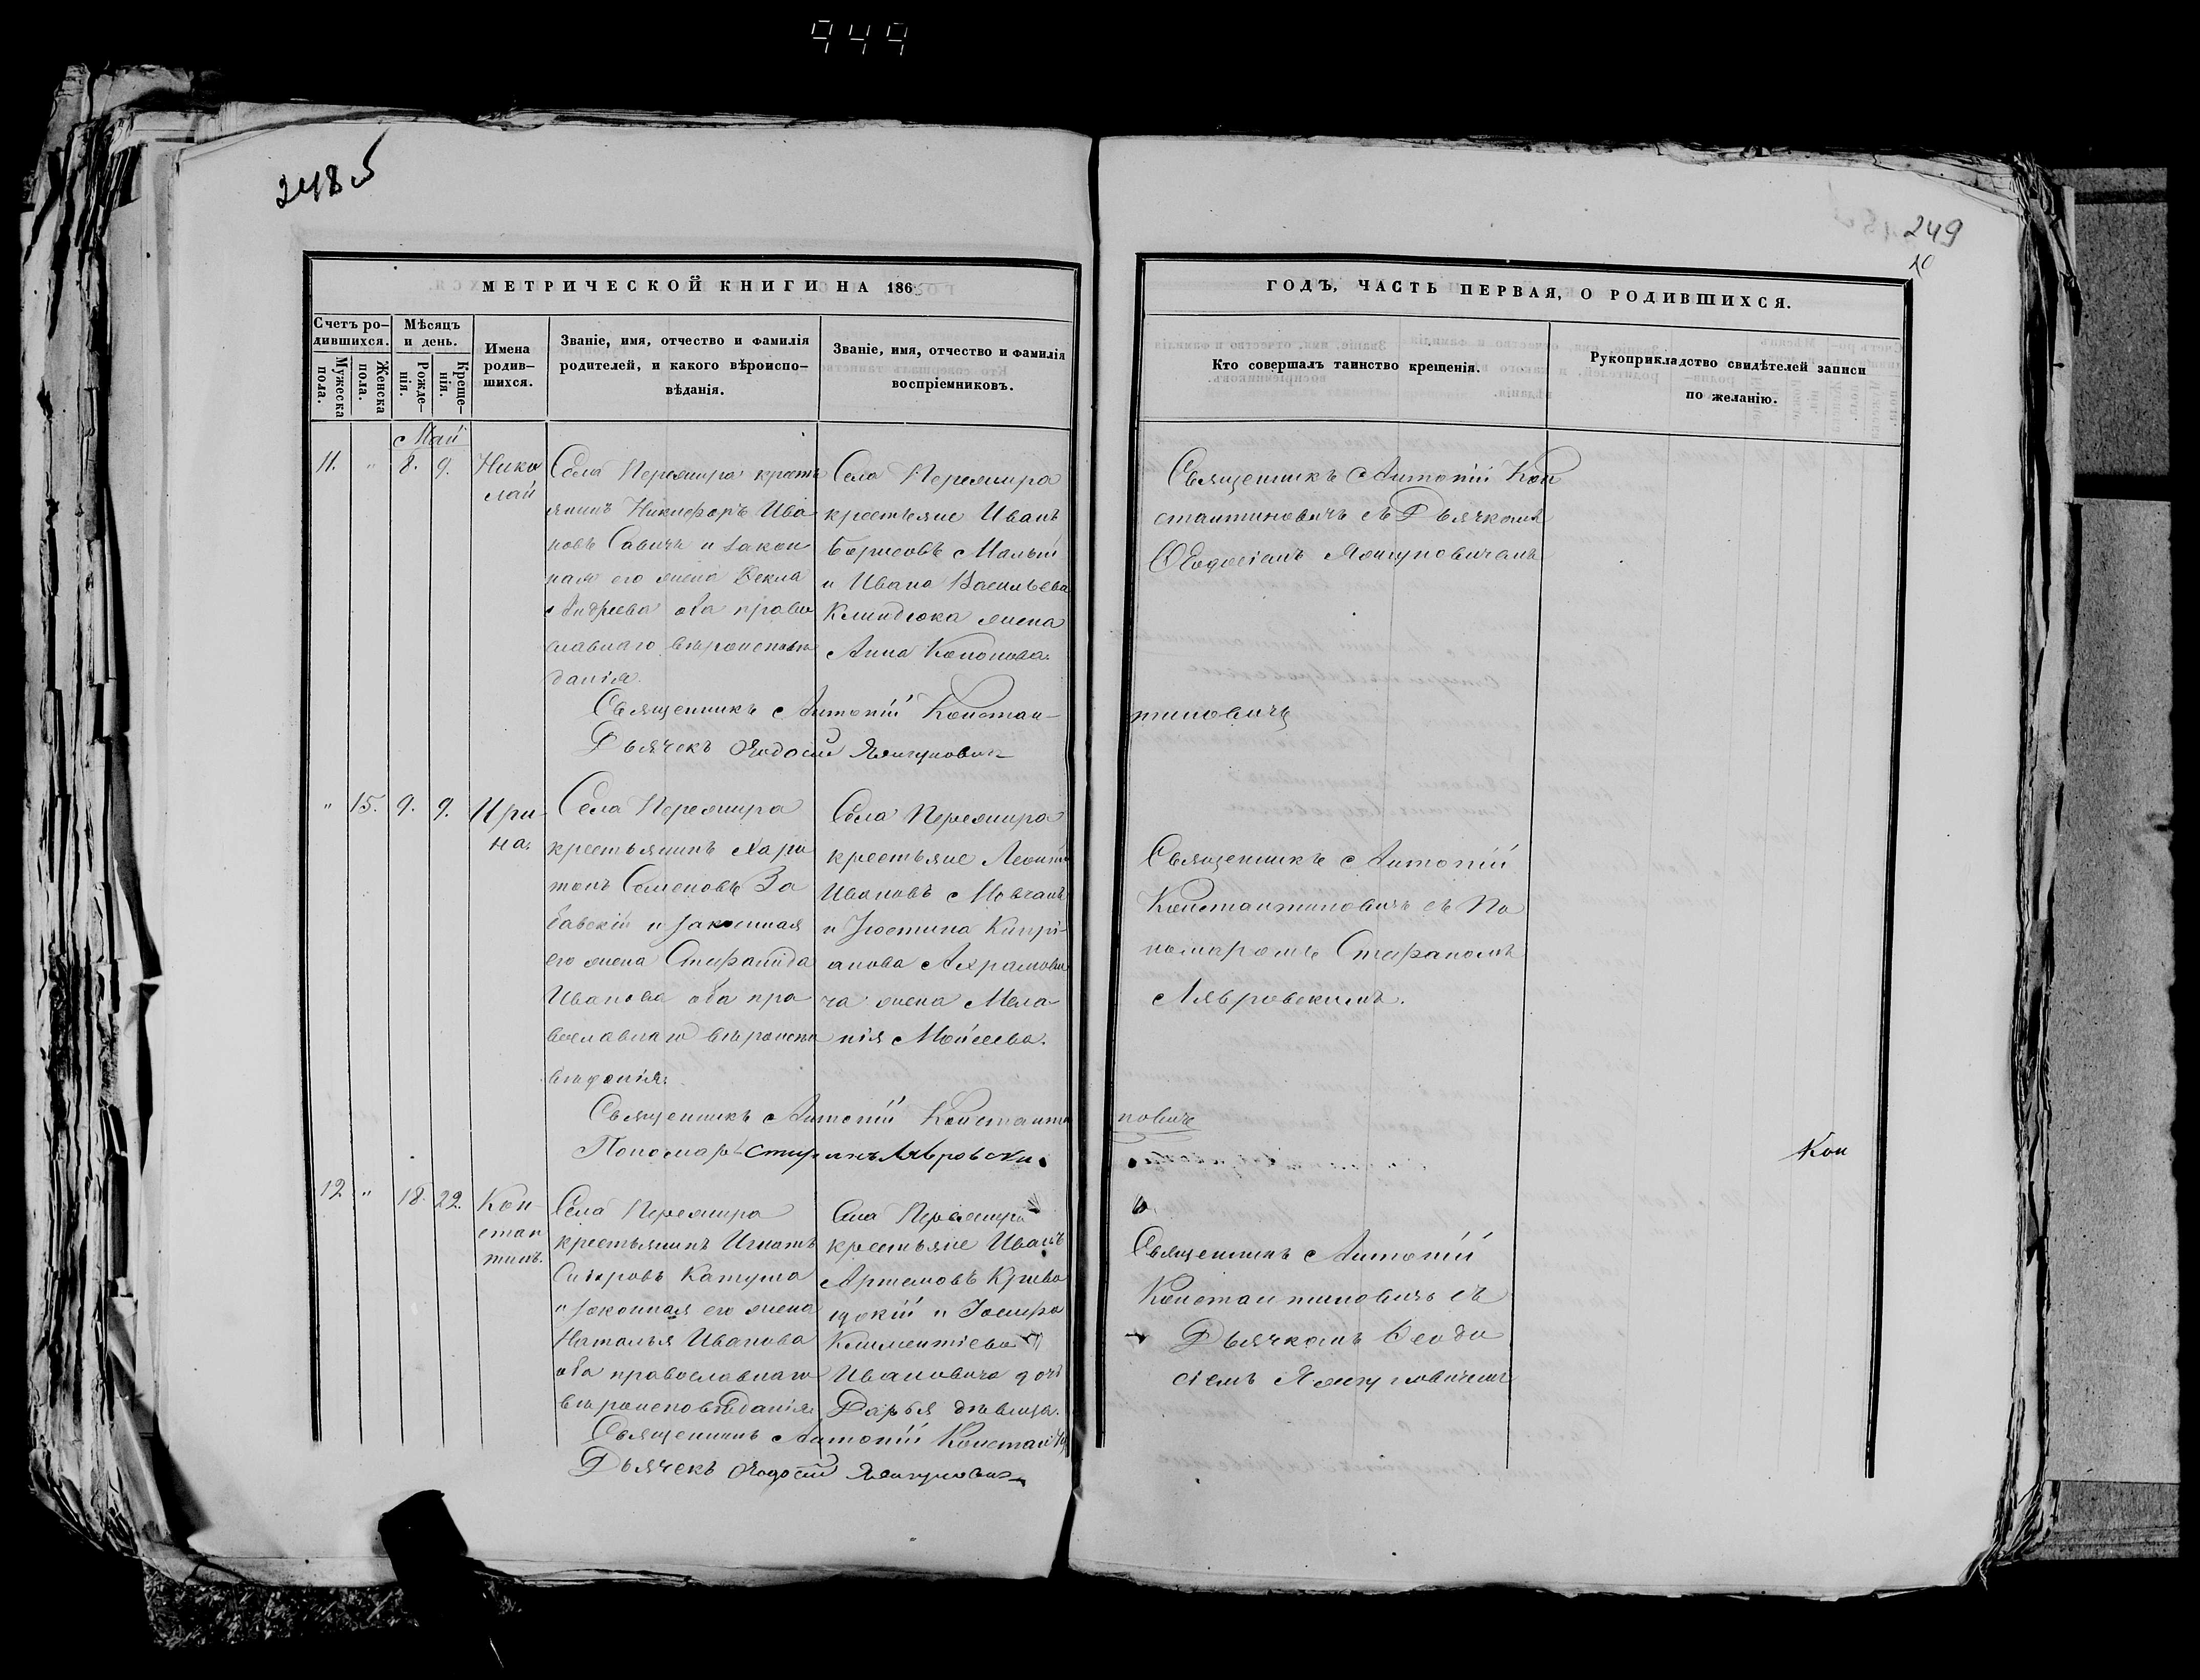 949
248
249
10
МЕТРИЧЕСКОЙ КНИГИ НА 186
ГОДЪ, ЧАСТЬ ПЕРВАЯ, О РОДИВШИХСЯ.
Счетъ ро-
дившихся.
Мужеска
пола.
Женска
пола.
Мѣсяцъ
и день.
Рожде-
нія.
Креще-
нія.
Имена
родив-
шихся.
Званіе, имя, отчество и фамилія
родителей, и какого вѣроиспо-
вѣданія.
Званіе, имя, отчество и фамилія
воспріемниковъ.
Кто совершалъ таинство крещенія.
Рукоприкладство свидѣтелей записи
по желанію.
Май
11.
"
8.
9.
Нико
лай
Села Перемира кресть
янинъ Никифоръ Ива
новъ Савичъ и закон
ная его жена Текла
Андреева оба право
славнаго вѣроисповѣ
данія.
Села Перемира
крестьяне Иванъ
Борисовъ Малый
и Ивана Васильева
Климдюка жена
Анна Кононова.
Священникъ Антоній Кон
стантиновичъ съ Дьячкомъ
Ѳеодосіемъ Янчуковичемъ
Священникъ Антоній Констан-
тиновичъ
Дьячекъ Ѳеодосій
"
15.
9.
9.
Ири-
на.
Села Перемира
крестьянинъ Хари
тонъ Семеновъ За
бавскій и законная
его жена Стефанида
Иванова оба пра
вославнаго вѣроиспо
вѣданія.
Села Перемира
крестьяне Леонтій
Ивановъ Мовчанъ
и Іустина Кипрі-
анова Ахрамови
ча жена Мела-
нія Моисеева.
Священникъ Антоній
Константиновичъ съ По
номаремъ Стефаномъ
Лявровскимъ.
Священникъ Антоній Константи
новичъ
Пономарь Стефанъ Лявровски
Кон
12
"
18.
22.
Кон-
стан
тинъ.
Села Перемира
крестьянинъ Игнатъ
Сидоровъ Катуша
и законная его жена
Наталья Иванова
оба православнаго
вѣроисповѣданія
Села Перемира
крестьяне Иванъ
Артемовъ Криво
Климентіева
Ивановича дочь
Дарья дѣвица.
Священникъ Антоній
Константиновичъ съ
Дьячкомъ Ѳеодо
сіемъ
Священникъ Антоній Констан
Дьячекъ Ѳеодосій